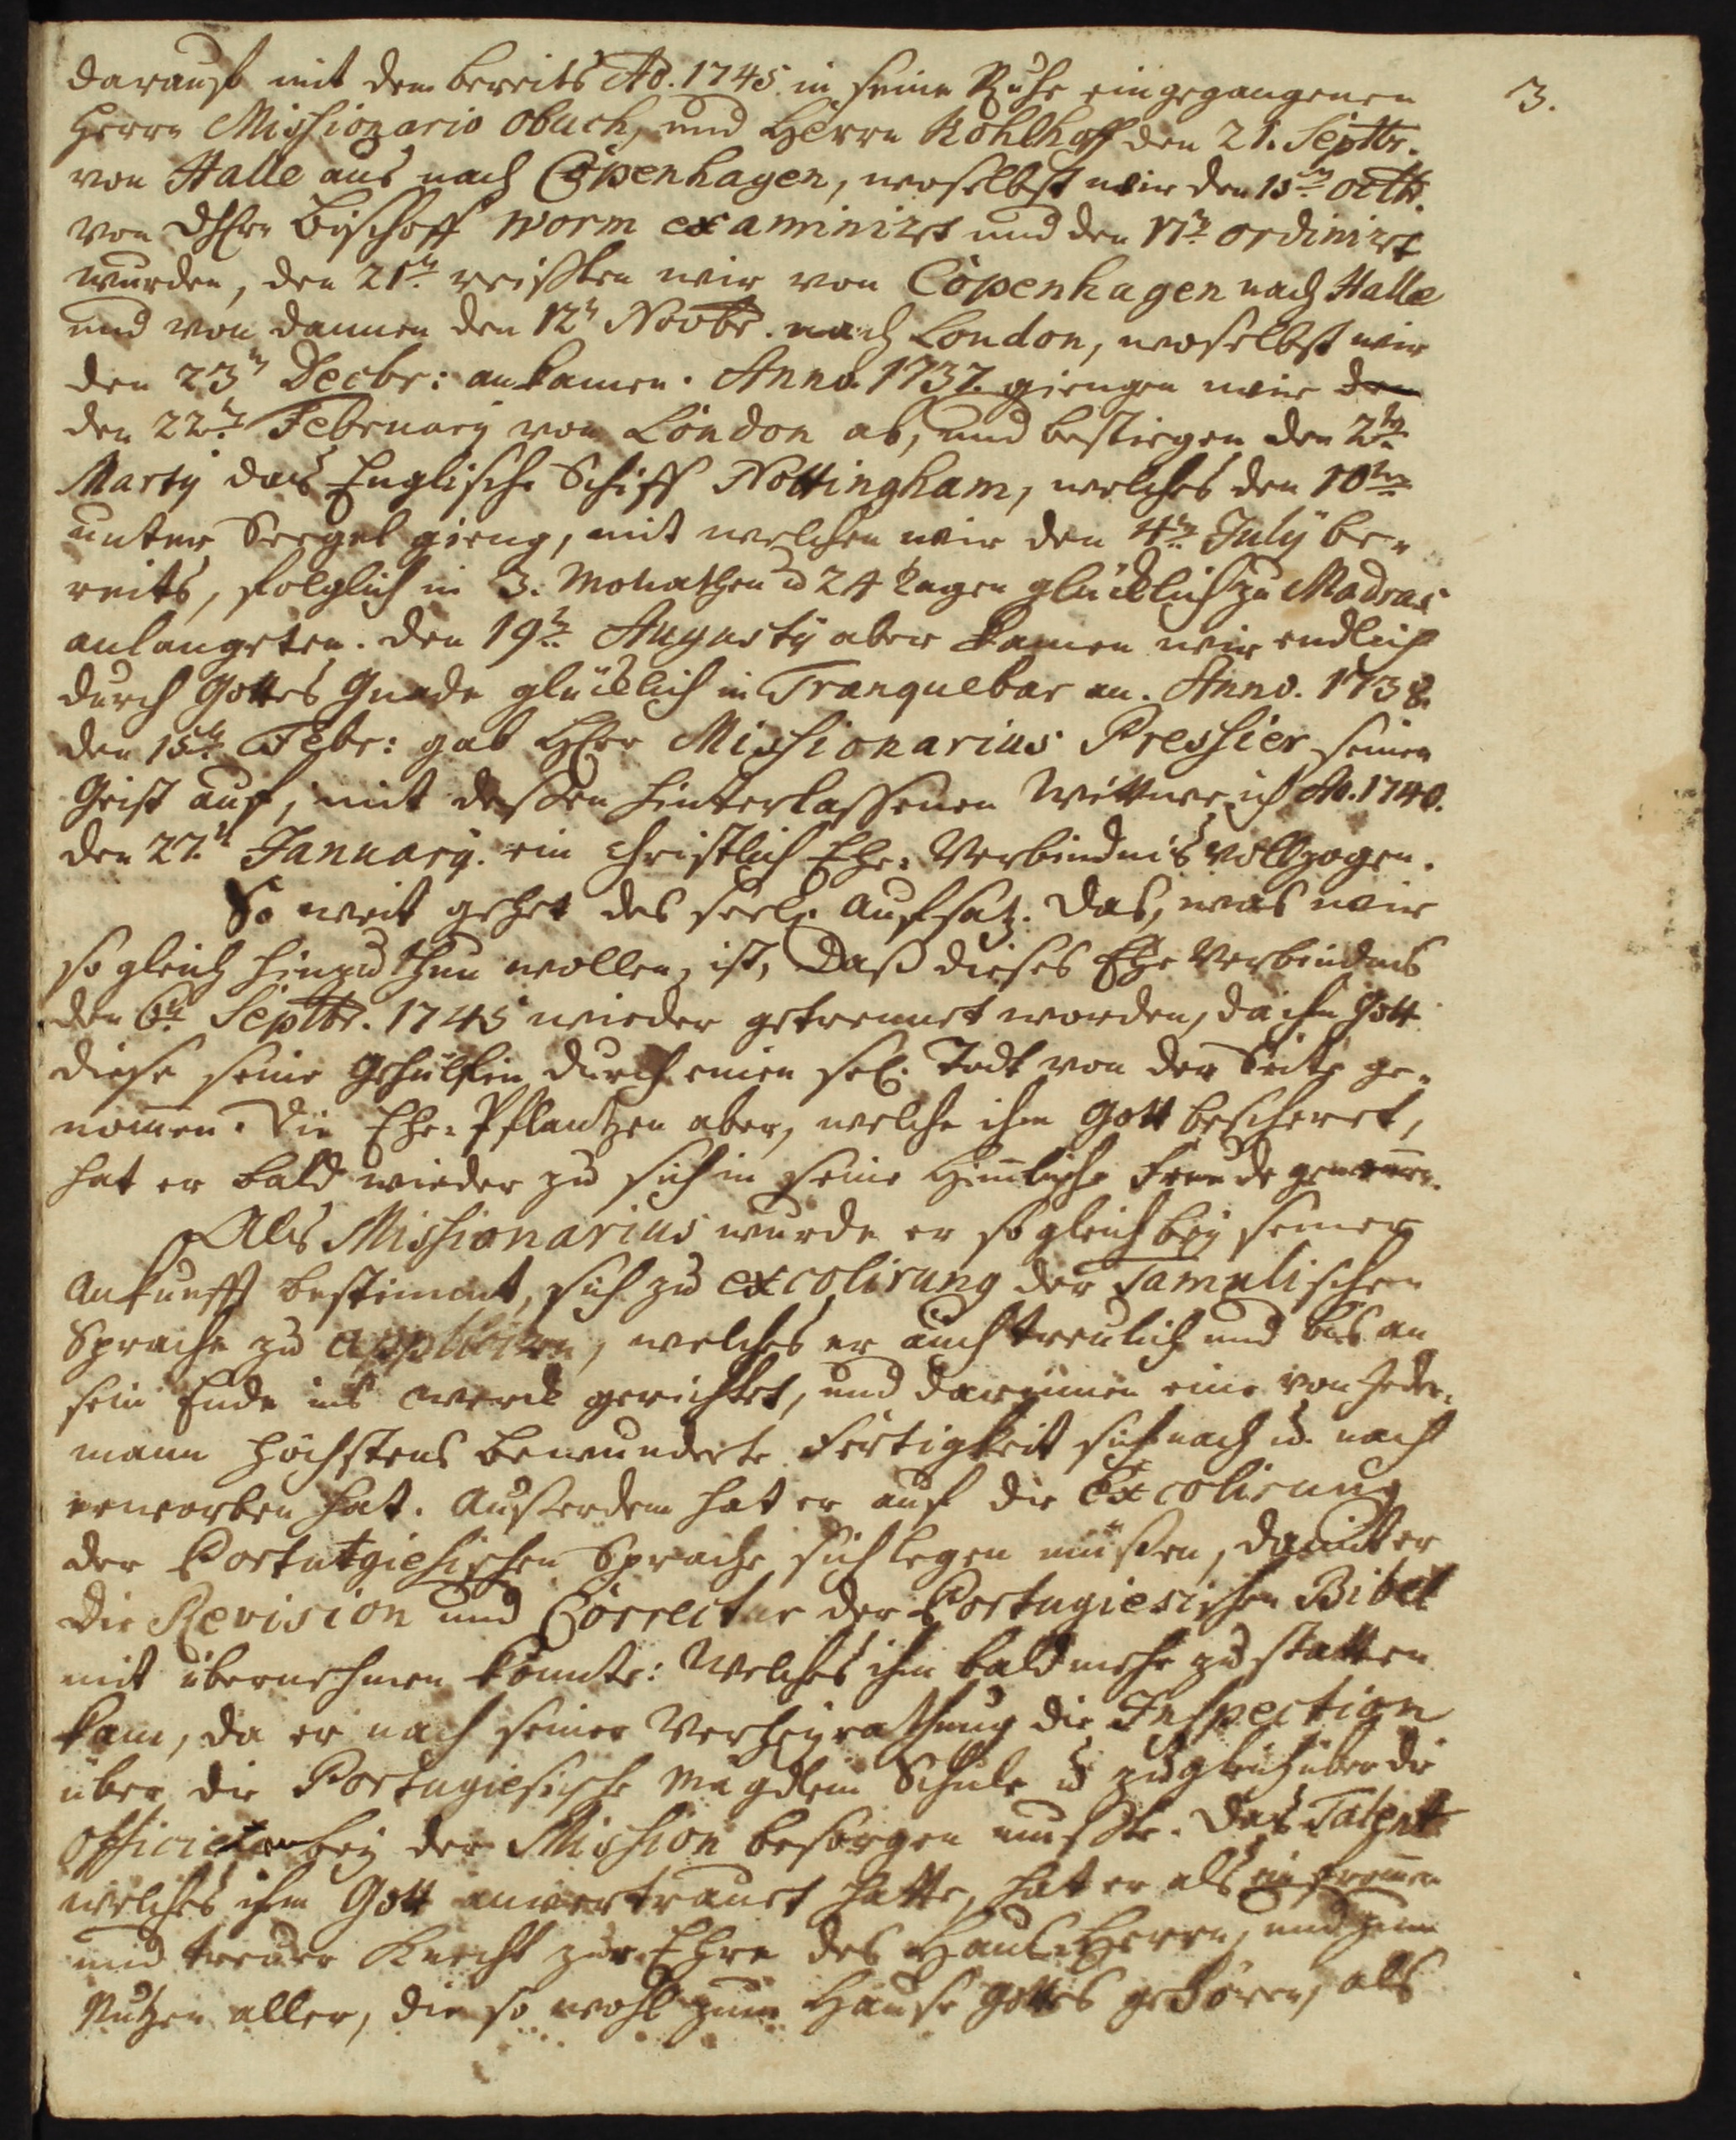 3.
darauf mit dem bereits Ao. 1745. in seine Ruhe eingegangenen
Herrn Missionario Obuch, und Herrn Kohlhoff den 21. Septbr.
von Halle aus nach Copenhagen, woselbst wir den 15n Octb.
von dHErn Bischoff Worm examinirt und den 17n ordinirt
wurden, den 21n reißten wir von Copenhagen nach Halle
und von dannen den 12n Novbr. nach London, woselbst wir
den 23n Decbr: ankamen. Anno 1737. giengen wir den
den 22n February von London ab, und bestiegen den 2tn
Martÿ das Englische Schiff Nottingham, welches den 10tn
unter Seegel gieng, mit welchen wir den 4n Julÿ be-
reits, folglich in 3. Monathen u 24 tagen glücklich zu Madras
anlangeten. den 19n Augustÿ aber kamen wir endlich
durch Gottes Gnade glücklich in Tranquebar an. Anno. 1738.
den 15n Febr: gab HErr Missionarius Pressier seinen
Geist auf, mit deßen hinterlassenen Wittwe ich Ao. 1740.
den 27.n January. ein christlich Ehe-Verbindnis vollzogen.
So weit gehet des seel. Aufsatz. Das, was wir
so gleich hinzu thun wollen, ist, Daß dieses Ehe Verbindnis
den 6n Septbr. 1745 wieder getrennet worden, da ihm Gott
diese seine Gehülfin durch einen sel. Todt von der Seite ge-
nom̄en. Die Ehe-Pflantzen aber, welche ihm Gott bescheret,
hat er bald wieder zu sich in seine Him̄lische Freude genom̄en.
Als Missionarius wurde er so gleich beÿ seiner
Ankunfft bestimmt, sich zu excolirung der Tamulischen
Sprache zu appliciren, welches er auch treulich und bis an
sein Ende ins werck gerichtet, und darinnen eine von Jeder-
mann höchstens bewunderte Fertigkeit sich nach u. nach
erworben hat. Außerdem hat er auf die Excolirung
der Portutgiesischen Sprache sich legen müßen, damit er
die Revision und Correctur der Portugiesischen Bibel
mit übernehmen könnte: Welches ihm bald mehr zu statten
kam, da er nach seiner Verheÿrathung die Inspection
über die Portugiesische Mägdlein Schule u zugleich über die
Officieten beÿ der Mission besorgen muste. Das Talent
welches ihm Gott anvertrauet hatte, hat er als ein from̄er
und treuer Knecht zur Ehre des Haus-Herrn, und zum
Nutzen aller, die so wohl zum Hause Gottes gehören, als